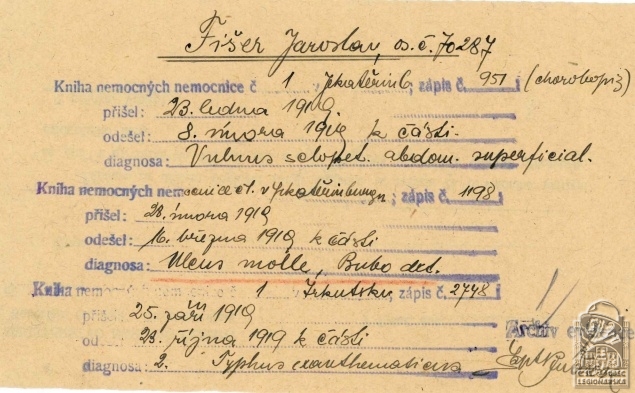 Fišer Jaroslav, os. č. 70287
Kniha nemocných nemocnice č 1 Jekatěrinb, zápis č. 951 (chorobopis)
přišel: 23. ledna 1919.
odešel: 8. února 1919 k části.
diagnosa: Vulnus sclopet. abdom. superficial.
Kniha nemocných nemocnice v Jekatěrinburgu, zápis č. 1198
přišel: 28. února 1919
odešel: 16. března 1919 k části
diagnosa: Ulcus molle, Bubo dxt.
Kniha nemocných nemocnice č 1 v Irkutsku, zápis č. 2748
přišel 25. září 1919
odešel 23. října 1919 k části
diagnosa: 2. Typhus exanthematicus
Archiv
ČSL. OBEC
LEGIONÁŘSKÁ